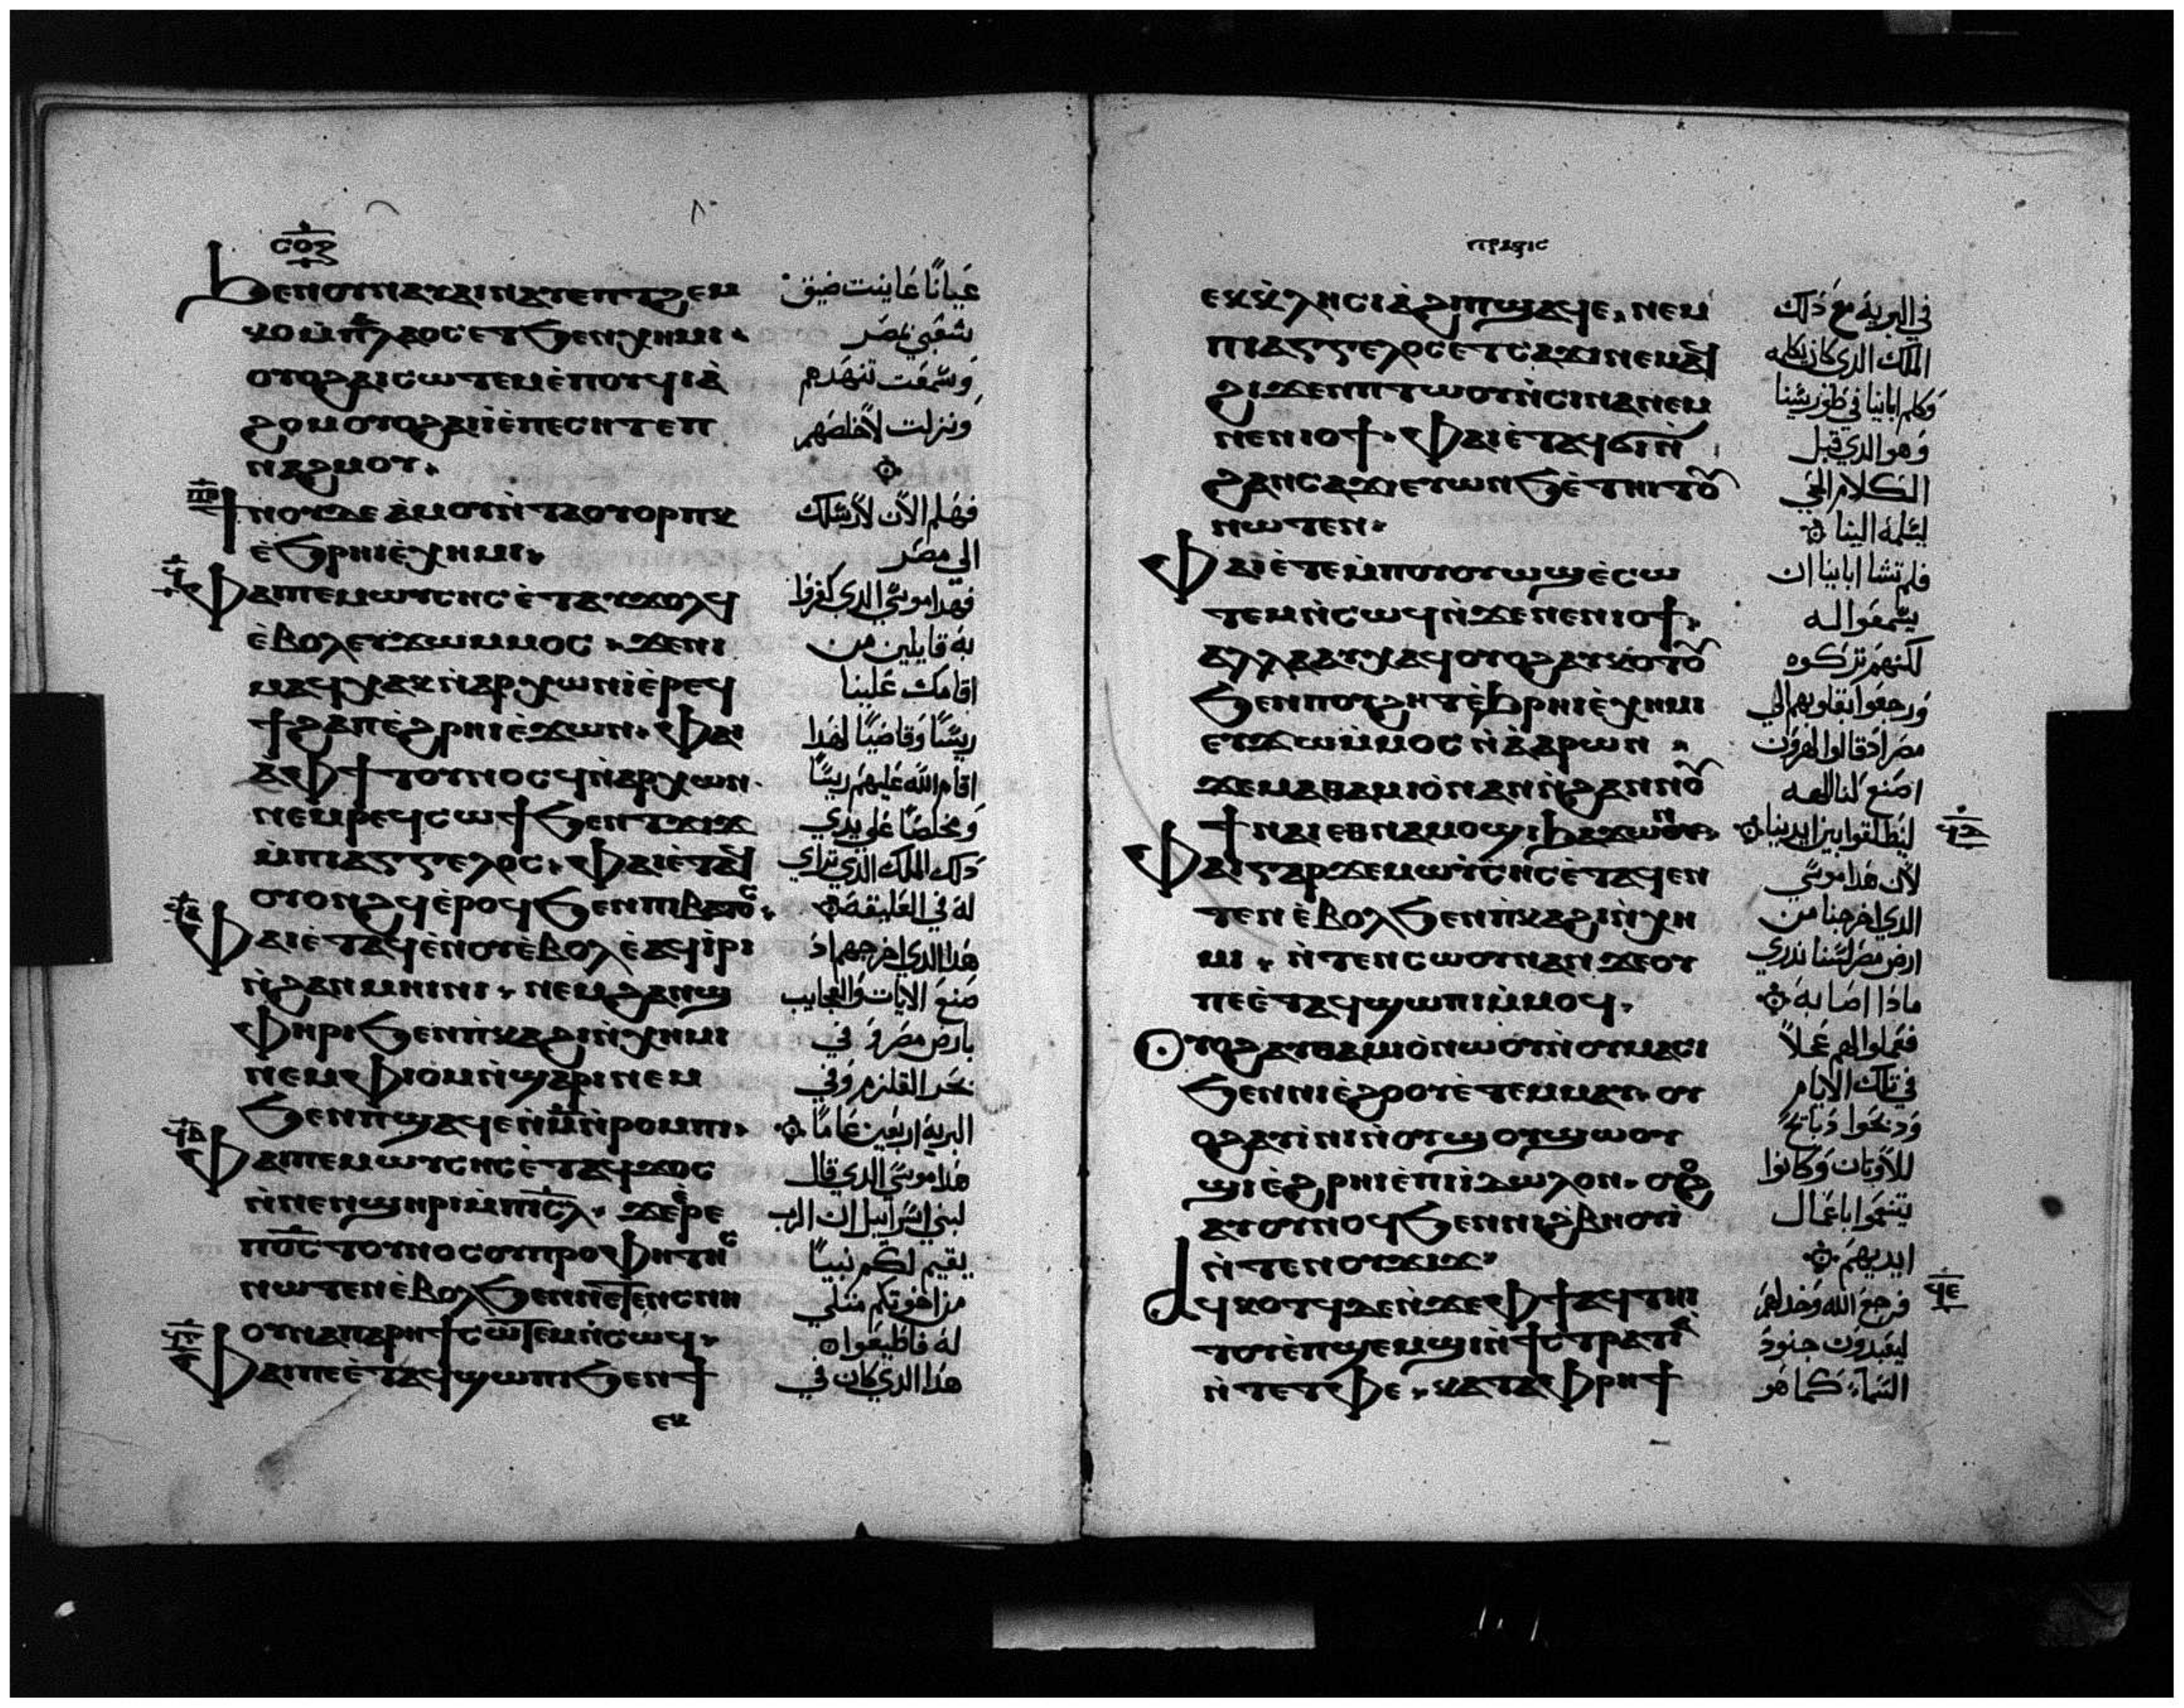 ⲥⲟⲍ
ϧⲉⲛⲟⲩⲛⲁⲩⲁⲓⲛⲁⲩⲉⲡⲧϩⲉⲙ
ⲕⲟⲙ̀ⲡⲁⲗⲁⲟⲥⲉⲧϧⲉⲛⲭⲏⲙⲓ
ⲟⲩⲟϩⲁⲓⲥⲱⲧⲉⲙⲉ̀ⲡⲟⲩϥⲓⲁ̀
ϩⲟⲙⲟⲩⲟϩⲁⲓⲓ̀ⲉ̀ⲡⲉⲥⲏⲧⲉⲡ
ⲛⲁϩⲙⲟⲩ
ϯⲛⲟⲩⲇⲉ ⲁ̀ⲙⲟⲩⲛ̀ⲧⲁⲟⲩⲟⲣⲡⲕ
ⲉ̀ϧⲣⲏⲓⲉ̀ⲭⲏⲙⲓ
ⲫⲁⲓⲡⲉⲙⲱⲩⲥⲏⲥⲉ̀ⲧⲁⲩϫⲟⲗϥ
ⲉ̀ⲃⲟⲗⲉⲩϫⲱⲙⲙⲟⲥ ϫⲉⲛⲓ
ⲙⲁϥⲭⲁⲕⲛ̀ⲁⲣⲭⲱⲛⲓⲉ̀ⲣⲉϥ
ϯϩⲁⲡⲉ̀ϩⲣⲏⲓⲉ̀ϫⲱⲛ ⲫⲁⲓ
ⲁ̀ⲫϯⲧⲟⲩⲛⲟⲥϥⲛ̀ⲁⲣⲭⲱⲛ
ⲛⲉⲙⲣⲉϥⲥⲱϯϧⲉⲛⲧϫⲓϫ
ⲙ̀ⲡⲓⲁⲅⲅⲉⲗⲟⲥ ⲫⲁⲓⲉ̀ⲧⲁϥ
ⲟⲩⲟⲛϩϥⲉ̀ⲣⲟϥϧⲉⲛⲡⲓⲃⲁⲧⲟⲥ
ⲫⲁⲓⲉ̀ⲧⲁϥⲉ̀ⲛⲟⲩⲉ̀ⲃⲟⲗⲉ̀ⲁϥⲓ̀ⲣⲓ
ⲛ̀ϩⲁⲛⲙⲏⲓⲛⲓ ⲛⲉⲙϩⲁⲛϣ
ⲫⲏⲣⲓϧⲉⲛⲡ̀ⲕⲁϩⲓⲛ̀ⲭⲏⲙⲓ
ⲛⲉⲙⲫⲓⲟⲙⲛ̀ϣⲁⲣⲓⲛⲉⲙ
ϧⲉⲛⲡϣⲁϥⲉⲛ̀ⲙ̅ⲛ̀ⲣⲟⲙⲡⲓ
ⲫⲁⲓⲡⲉⲙⲱⲩⲥⲏⲥⲉ̀ⲧⲁϥϫⲟⲥ
ⲛ̀ⲛⲉⲛϣⲏⲣⲓⲙ̀ⲡⲓⲥ̅ⲗ̅ ϫⲉⲉ̀ⲣⲉ
ⲡⲟ̅ⲥ̅ⲧⲟⲩⲛⲟⲥⲟⲩⲡⲣⲟⲫⲏⲧⲏⲥ
ⲛⲱⲧⲉⲛⲉ̀ⲃⲟⲗϧⲉⲛⲛⲉⲧⲉⲛⲥⲛⲏ
ⲟⲩⲙ̀ⲡⲁⲣⲏϯⲥⲱⲧⲉⲙⲛ̀ⲥⲱϥ
ⲫⲁⲓⲡⲉⲉ̀ⲧⲁϥϣⲱⲡⲓϧⲉⲛϯ
ⲉⲕ
عيانًا عاينت ضيق
شعبي بمصر
وسمعت تنهدهم
ونزلت لأخلصهم
فهلم الآن لأرسلك
الي مصر
فهذا موسي الذي كفروا
به قايلين من
اقامك علينا
رييسًا وقاضيًا لهذا
اقام الله عليهم رييسًا
ومخلصًا علي يدي
ذلك الملك الذي تراي
له في العليقة
هذا الذي اخرجهم اذ
صنع الايات والعجايب
بارض مصر وفي
بحر القلزم وفي
البرية اربعين عامًا
هذا موسي الذي قال
لبني اسراييل ان الرب
يقيم لكم نبيًا
من اخوتكم مثلي
له فاطيعوا
هذا الذي كان في
ⲡⲣⲁⲝⲓⲥ
ⲉⲕⲕⲗⲏⲥⲓⲁ̀ϩⲓⲡϣⲁϥⲉ ⲛⲉⲙ
ⲡⲓⲁⲅⲅⲉⲗⲟⲥⲉⲧⲥⲁϫⲓⲛⲉⲙⲁϥ
ϩⲓϫⲉⲛⲡⲧⲱⲟⲩⲛ̀ⲥⲓⲛⲁⲛⲉⲙ
ⲛⲉⲛⲓⲟϯ ⲫⲁⲓⲉ̀ⲧⲁϥϭⲓⲛ̀
ϩⲁⲛⲥⲁϫⲓⲉⲩⲱⲛϧⲉ̀ⲧⲏⲓⲧⲟⲩ
ⲛⲱⲧⲉⲛ
ⲫⲁⲓⲉ̀ⲧⲉⲙ̀ⲡⲟⲩⲟⲩⲱϣⲉ̀ⲥⲱ
ⲧⲉⲙⲛ̀ⲥⲱϥⲛ̀ϫⲉⲛⲉⲛⲓⲟϯ
ⲁⲗⲗⲁⲁⲩⲭⲁϥⲟⲩⲟϩⲁⲩⲕⲟⲧⲟⲩ
ϧⲉⲛⲡⲟⲩϩⲏⲧⲉ̀ϧⲣⲏⲓⲉ̀ⲭⲏⲙⲓ
ⲉⲩϫⲱⲙ̀ⲙⲟⲥ ⲛ̀ⲁ̀ⲁⲣⲱⲛ
ϫⲉⲙⲁⲑⲁⲙⲓⲟ̀ⲛⲁⲛⲛ̀ϩⲁⲛⲛⲟⲩ
ϯⲛⲁⲓⲉⲑⲛⲁⲙⲟϣⲓϧⲁϫⲱⲟⲩⲛ
ⲫⲁⲓⲅⲁⲣϫⲉⲙⲱⲩⲥⲏⲥⲉ̀ⲧⲁϥⲉⲛ
ⲧⲉⲛⲉ̀ⲃⲟⲗϧⲉⲛⲡ̀ⲕⲁϩⲓⲛ̀ⲭⲏ
ⲙⲓ ⲛ̀ⲧⲉⲛⲥⲱⲟⲩⲛⲁⲛϫⲉⲟⲩ
ⲡⲉⲉ̀ⲧⲁϥϣⲱⲡⲓⲙ̀ⲙⲟϥ
ⲟⲩⲟϩⲁⲩⲑⲁⲙⲓⲟ̀ⲛⲱⲟⲩⲛ̀ⲟⲩⲙⲁⲥⲓ
ϧⲉⲛⲛⲓⲉ̀ϩⲟⲟⲩⲉ̀ⲧⲉⲙⲙⲁⲩ ⲟⲩ
ⲟϩⲁⲩⲓ̀ⲛⲓⲛ̀ⲟⲩϣⲟⲩϣⲱⲟⲩ
ϣⲓⲉ̀ϩⲣⲏⲓⲉ̀ⲡⲓⲓ̀ⲇⲱⲗⲟⲛ ⲟⲩⲟϩ
ⲁⲩⲟⲩⲛⲟϥϧⲉⲛⲛⲓϩⲃⲏⲟⲩⲓ̀
ⲛ̀ⲧⲉⲛⲟⲩϫⲓϫ
ⲁϥⲕⲟⲧϥⲇⲉⲛ̀ϫⲉⲫϯⲁϥⲧⲏⲓ
ⲧⲟⲩⲉ̀ⲡϣⲉⲙϣⲓⲛ̀ϯⲥⲧⲣⲁⲧⲓⲁ̀
ⲛ̀ⲧⲉⲧⲫⲉ ⲕⲁⲧⲁⲫⲣⲏϯ
في البرية مع ذلك
الملك الذي كان يكلمه
وكلم ابايا في طور سينا
وهو الذي قبل
الكلام الحي
ليسلمه الينا
فلم تشا اباينا ان
يسمعوا له
لكنهم تركوه
ورجعوا بقلوبهم الي
مصر اذ قالوا لهرون
اصنع لنا الهه
لينطلقوا بين ايدينا
لأن هذا موسي
الذي اخرجنا من
ارض مصر لسنا ندري
ماذا اصابه
فعملوا لهم عجلاً
في تلك الايام
وذبحوا ذبايح
للأوثان وكانوا
يتنعموا باعمال
ايديهم
فرجع الله وخذلهم
ليعبدون جنود
السماء كما هو